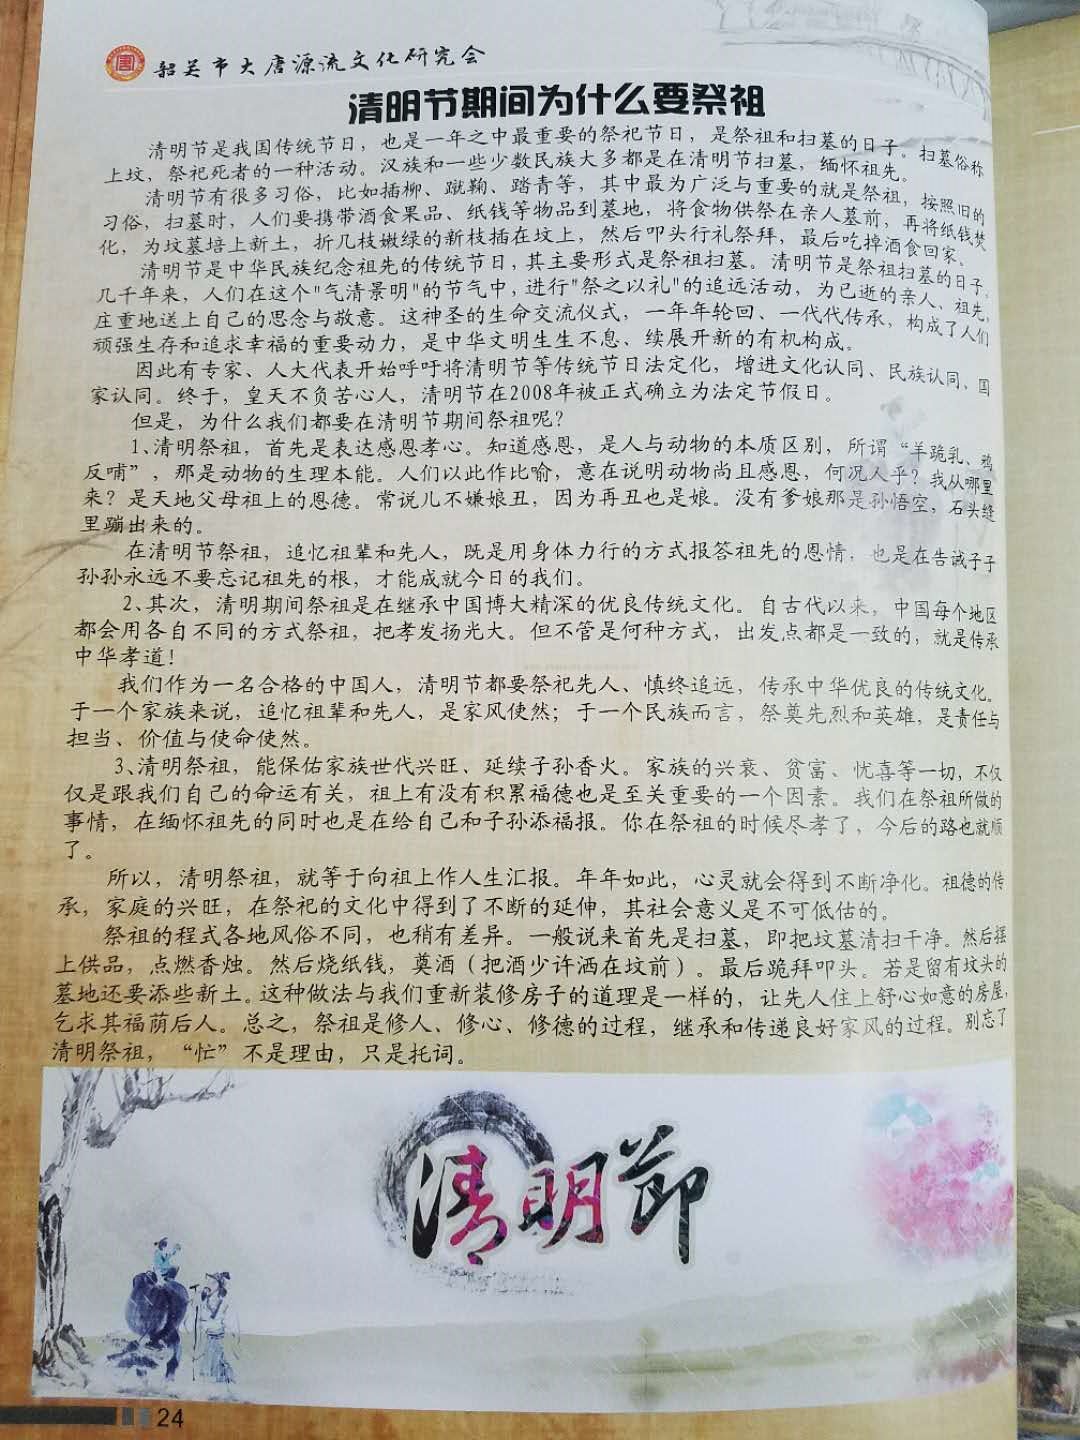 韶关市大唐源流文化研究会
清明节期间为什么要祭祖
清明节是我国传统节日，也是一年之中最重要的祭祀节日，是祭祖和扫墓的日子。扫墓俗称
上坟，祭祀死者的一种活动。汉族和一些少数民族大多都是在清明节扫墓，缅怀祖先。
清明节有很多习俗，比如插柳、蹴鞠、踏青等，其中最为广泛与重要的就是祭祖，按照旧的
习俗，扫墓时，人们要携带酒食果品、纸钱等物品到墓地，将食物供祭在亲人墓前，再将纸钱焚
化，为坟墓培上新土，折几枝嫩绿的新枝插在坟上，然后叩头行礼祭拜，最后吃掉酒食回家。
清明节是中华民族纪念祖先的传统节日，其主要形式是祭祖扫墓。清明节是祭祖扫墓的日子，
几千年来，人们在这个"气清景明"的节气中，进行"祭之以礼"的追远活动，为已逝的亲人、祖先，
庄重地送上自己的思念与敬意。这神圣的生命交流仪式，一年年轮回、一代代传承，构成了人们
顽强生存和追求幸福的重要动力，是中华文明生生不息、续展开新的有机构成。
因此有专家、人大代表开始呼吁将清明节等传统节日法定化，增进文化认同、民族认同、国
家认同。终于，皇天不负苦心人，清明节在2008年被正式确立为法定节假日。
但是，为什么我们都要在清明节期间祭祖呢？
1、清明祭祖，首先是表达感恩孝心。知道感恩，是人与动物的本质区别，所谓“羊跪乳、鸦
反哺”，那是动物的生理本能。人们以此作比喻，意在说明动物尚且感恩，何况人乎？我从哪里
来？是天地父母祖上的恩德。常说儿不嫌娘丑，因为再丑也是娘。没有爹娘那是孙悟空，石头缝
里蹦出来的。
在清明节祭祖，追忆祖辈和先人，既是用身体力行的方式报答祖先的恩情，也是在告诫子子
孙孙永远不要忘记祖先的根，才能成就今日的我们。
2、其次，清明期间祭祖是在继承中国博大精深的优良传统文化。自古代以来，中国每个地区
都会用各自不同的方式祭祖，把孝发扬光大。但不管是何种方式，出发点都是一致的，就是传承
中华孝道！
我们作为一名合格的中国人，清明节都要祭祀先人、慎终追远，传承中华优良的传统文化。
于一个家族来说，追忆祖辈和先人，是家风使然；于一个民族而言，祭奠先烈和英雄，是责任与
担当、价值与使命使然。
3、清明祭祖，能保佑家族世代兴旺、延续子孙香火。家族的兴衰、贫富、忧喜等一切，不仅
仅是跟我们自己的命运有关，祖上有没有积累福德也是至关重要的一个因素。我们在祭祖所做的
事情，在缅怀祖先的同时也是在给自己和子孙添福报。你在祭祖的时候尽孝了，今后的路也就顺
了。
所以，清明祭祖，就等于向祖上作人生汇报。年年如此，心灵就会得到不断净化。祖德的传
承，家庭的兴旺，在祭祀的文化中得到了不断的延伸，其社会意义是不可低估的。
祭祖的程式各地风俗不同，也稍有差异。一般说来首先是扫墓，即把坟墓清扫干净。然后摆
上供品，点燃香烛。然后烧纸钱，奠酒（把酒少许洒在坟前）。最后跪拜叩头。若是留有坟头的
墓地还要添些新土。这种做法与我们重新装修房子的道理是一样的，让先人住上舒心如意的房屋，
乞求其福荫后人。总之，祭祖是修人、修心、修德的过程，继承和传递良好家风的过程。别忘了
清明祭祖，“忙”不是理由，只是托词。
清明节
24